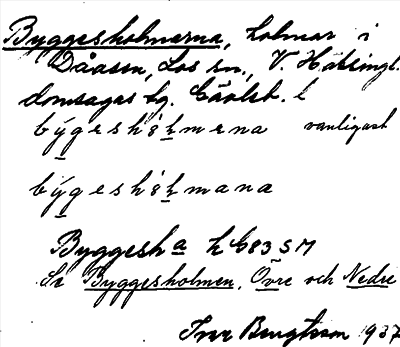 Byggesholmerna, holmar i
Dåasen, Los sn., V. Hälsingl.
domsagas tg. Gävleb. l
býgeshòlmena vanligast
býgeshòlmana
Byggesha h G83 SM
Se Byggesholmen, Övre och Nedre
Ivar Bengtsson 1937